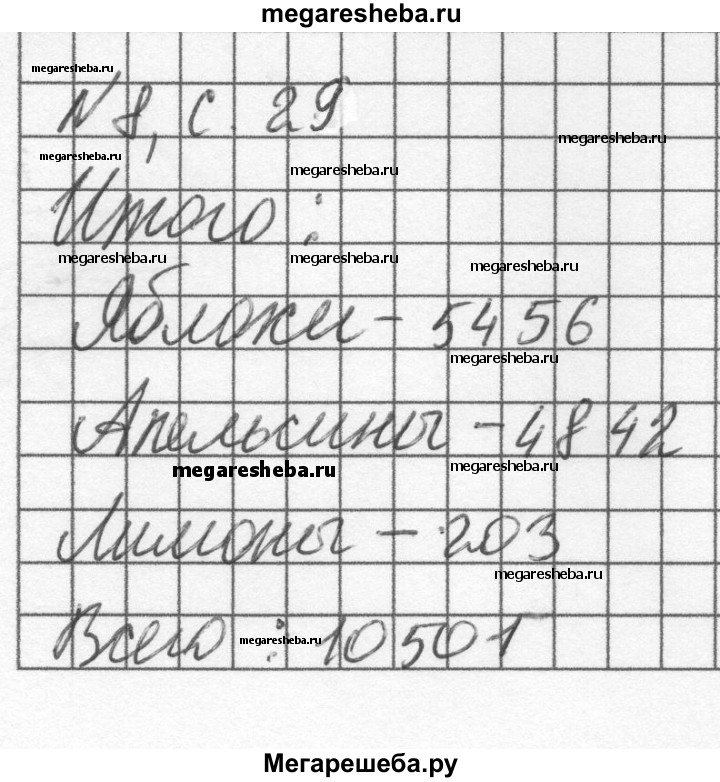 megaresheba.ru
megaresheba.ru
№ 8, с. 29
megaresheba.ru
megaresheba.ru
megaresheba.ru
Итого :
megaresheba.ru
megaresheba.ru
megaresheba.ru
Яблоки - 5456
megaresheba.ru
Апельсины - 4842
megaresheba.ru
megaresheba.ru
Лимоны - 203
megaresheba.ru
Всего : 10501
megaresheba.ru
Мегарешеба.ру